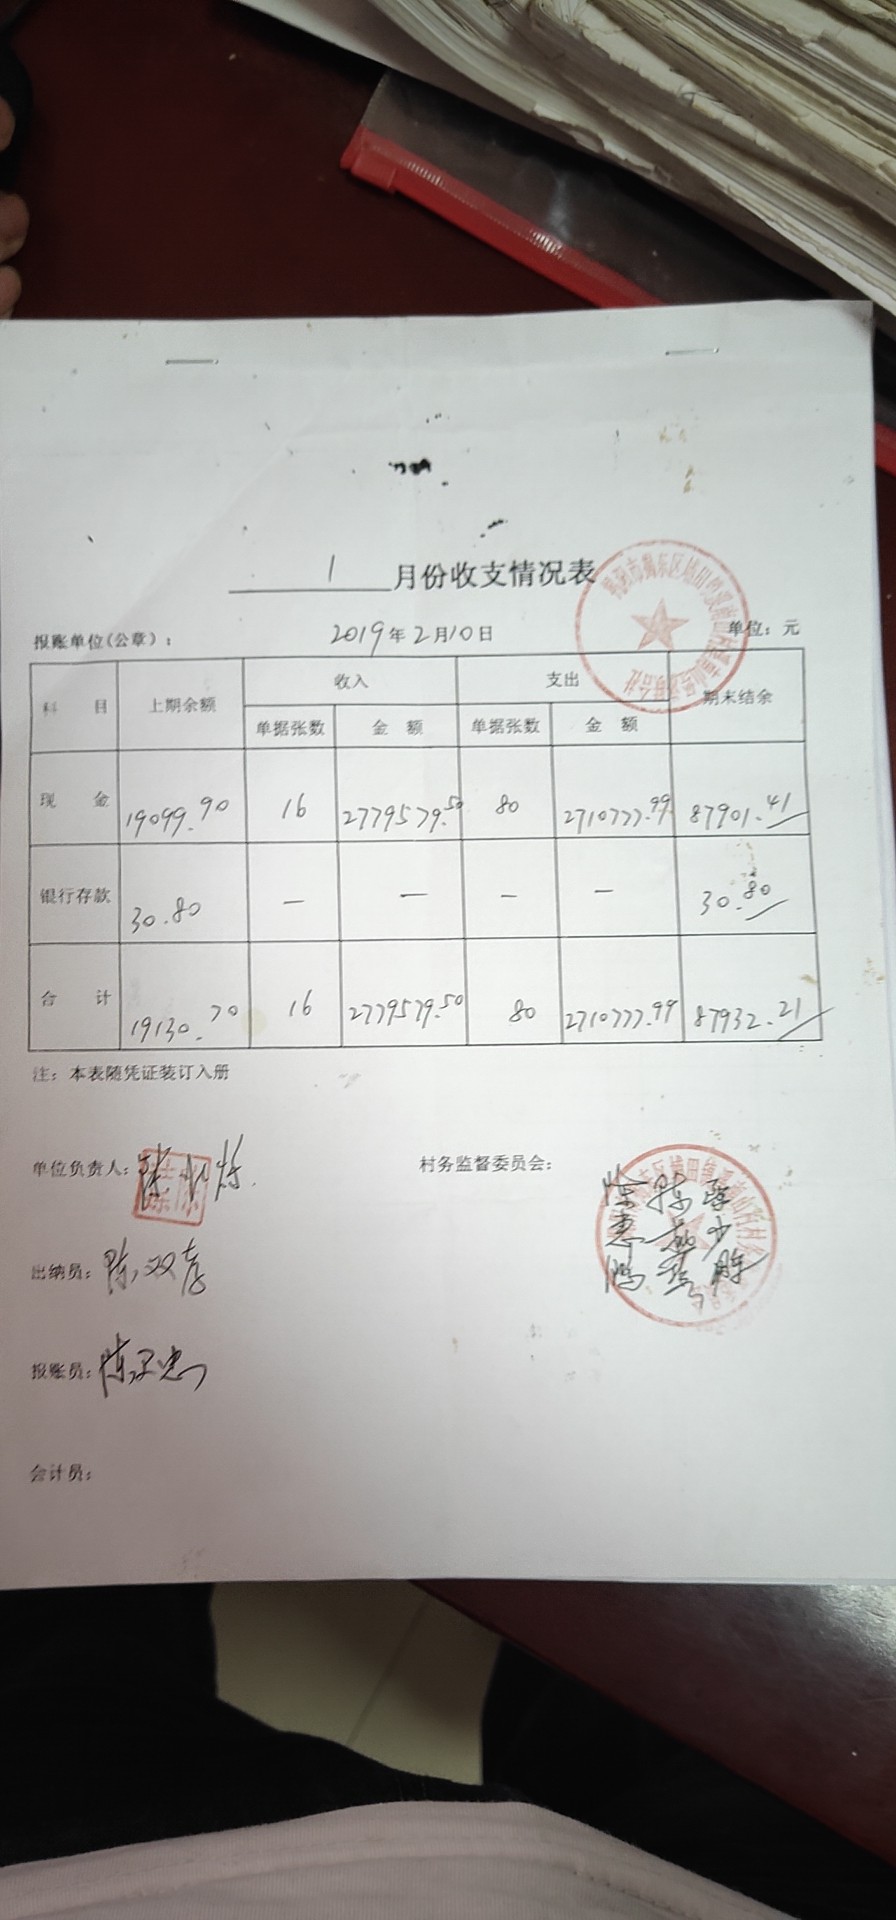 1 月份收支情况表
报账单位(公章): 2019年2月10日 单位: 元
科 目 上期余额 收入 支出 期末结余
单据张数 金 额 单据张数 金 额
现 金 19099.90 16 2779579.50 80 2710777.99 87901.41
银行存款 30.80 — — — — 30.80
合 计 19130.70 16 2779579.50 80 2710777.99 87932.21
注: 本表随凭证装订入册
单位负责人: 村务监督委员会:
出纳员: 陈双孝
报账员: 陈
会计员: